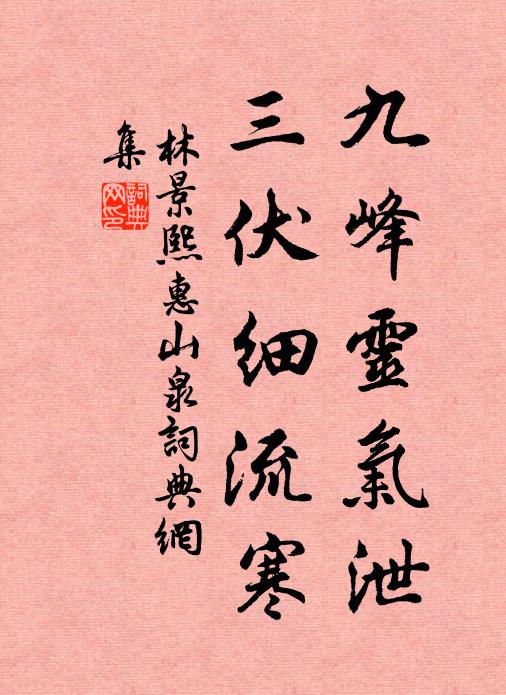 九峰靈氣泄
三伏細流寒
林景熙惠山泉詞典網
集
詞典
网印